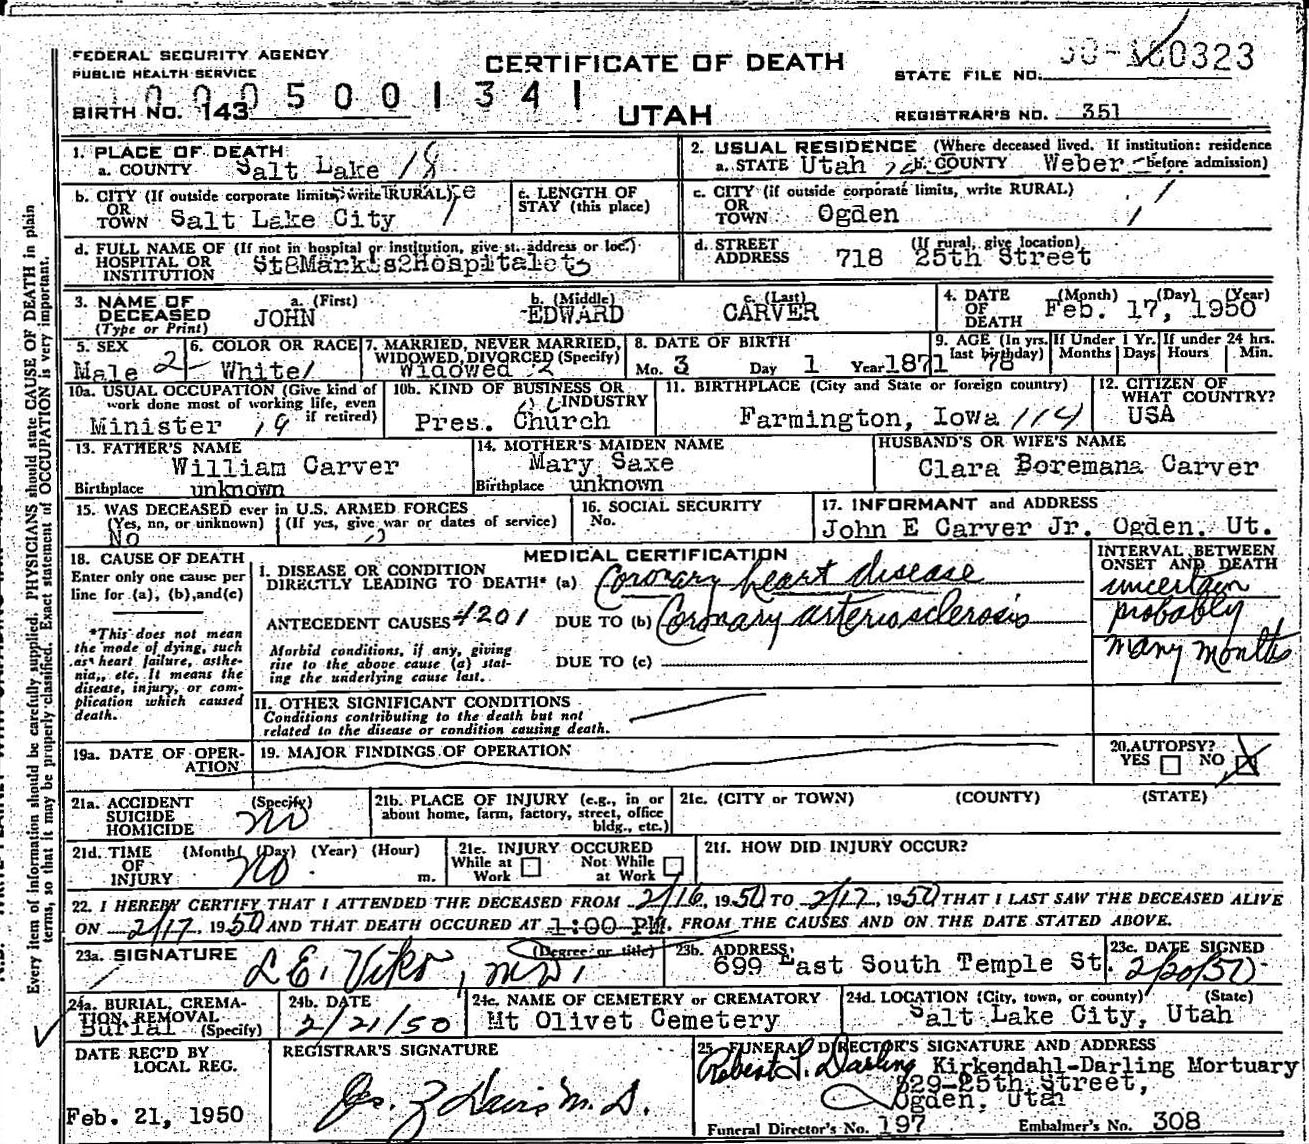 FEDERAL SECURITY AGENCY
PUBLIC HEALTH SERVICE
CERTIFICATE OF DEATH
STATE FILE NO. 0323
5 0 0 1 3 4 1
BIRTH NO. 143
UTAH
REGISTRAR'S NO. 351
1. PLACE OF DEATH
a. COUNTY Salt Lake 18
2. USUAL RESIDENCE (Where deceased lived. If institution: residence
a. STATE Utah b. COUNTY Weber before admission)
b. CITY (If outside corporate limits, write RURAL)
OR
TOWN Salt Lake City
c. LENGTH OF
STAY (this place)
c. CITY (if outside corporate limits, write RURAL)
OR
TOWN Ogden
d. FULL NAME OF (If not in hospital or institution, give st. address or loc.)
HOSPITAL OR
INSTITUTION
d. STREET
ADDRESS
(If rural, give location)
718 25th Street
3. NAME OF
DECEASED
(Type or Print)
a. (First)
JOHN
b. (Middle)
EDWARD
c. (Last)
CARVER
4. DATE
OF
DEATH
(Month) (Day) (Year)
Feb. 17, 1950
5. SEX
Male 2
6. COLOR OR RACE
White
7. MARRIED, NEVER MARRIED,
WIDOWED, DIVORCED (Specify)
Widowed
8. DATE OF BIRTH
Mo. 3 Day 1 Year 1871
9. AGE (In yrs.
last birthday)
78
If Under 1 Yr.
Months Days
If under 24 hrs.
Hours Min.
10a. USUAL OCCUPATION (Give kind of
work done most of working life, even
if retired)
Minister 19
10b. KIND OF BUSINESS OR
INDUSTRY
Pres. Church
11. BIRTHPLACE (City and State or foreign country)
Farmington, Iowa 114
12. CITIZEN OF
WHAT COUNTRY?
USA
13. FATHER'S NAME
William Carver
Birthplace unknown
14. MOTHER'S MAIDEN NAME
Mary Saxe
Birthplace unknown
HUSBAND'S OR WIFE'S NAME
Clara Boremana Carver
15. WAS DECEASED ever in U.S. ARMED FORCES
(Yes, no, or unknown) (If yes, give war or dates of service)
No
16. SOCIAL SECURITY
No.
17. INFORMANT and ADDRESS
John E Carver Jr. Ogden, Ut.
18. CAUSE OF DEATH
Enter only one cause per
line for (a), (b), and (c)
*This does not mean
the mode of dying, such
as heart failure, asthe-
nia, etc. It means the
disease, injury, or com-
plication which caused
death.
MEDICAL CERTIFICATION
I. DISEASE OR CONDITION
DIRECTLY LEADING TO DEATH* (a) Coronary heart disease
ANTECEDENT CAUSES 4201 DUE TO (b) Coronary arteriosclerosis
Morbid conditions, if any, giving
rise to the above cause (a) stat-
ing the underlying cause last.
DUE TO (c)
INTERVAL BETWEEN
ONSET AND DEATH
uncertain
probably
many months
II. OTHER SIGNIFICANT CONDITIONS
Conditions contributing to the death but not
related to the disease or condition causing death.
19a. DATE OF OPER-
ATION
19. MAJOR FINDINGS OF OPERATION
20. AUTOPSY?
YES NO X
21a. ACCIDENT
SUICIDE
HOMICIDE
(Specify)
no
21b. PLACE OF INJURY (e.g., in or
about home, farm, factory, street, office
bldg., etc.)
21c. (CITY or TOWN) (COUNTY) (STATE)
21d. TIME
OF
INJURY
(Month) (Day) (Year) (Hour)
no m.
21e. INJURY OCCURED
While at
Work
Not While
at Work
21f. HOW DID INJURY OCCUR?
22. I HEREBY CERTIFY THAT I ATTENDED THE DECEASED FROM 2/16, 1950 TO 2/17, 1950 THAT I LAST SAW THE DECEASED ALIVE
ON 2/17, 1950 AND THAT DEATH OCCURED AT 1:00 PM, FROM THE CAUSES AND ON THE DATE STATED ABOVE.
23a. SIGNATURE (Degree or title)
L E. Viko, M.D.
23b. ADDRESS:
699 East South Temple St.
23c. DATE SIGNED
2/20/50
24a. BURIAL, CREMA-
TION, REMOVAL
Burial (Specify)
24b. DATE
2/21/50
24c. NAME OF CEMETERY or CREMATORY
Mt Olivet Cemetery
24d. LOCATION (City, town, or county) (State)
Salt Lake City, Utah
DATE REC'D BY
LOCAL REG.
Feb. 21, 1950
REGISTRAR'S SIGNATURE
25. FUNERAL DIRECTOR'S SIGNATURE AND ADDRESS
Robert L. Darling Kirkendahl-Darling Mortuary
829-25th Street,
Ogden, Utah
Funeral Director's No. 197 Embalmer's No. 308
Every item of information should be carefully supplied. PHYSICIANS should state CAUSE OF DEATH in plain
terms, so that it may be properly classified. Exact statement of OCCUPATION is very important.